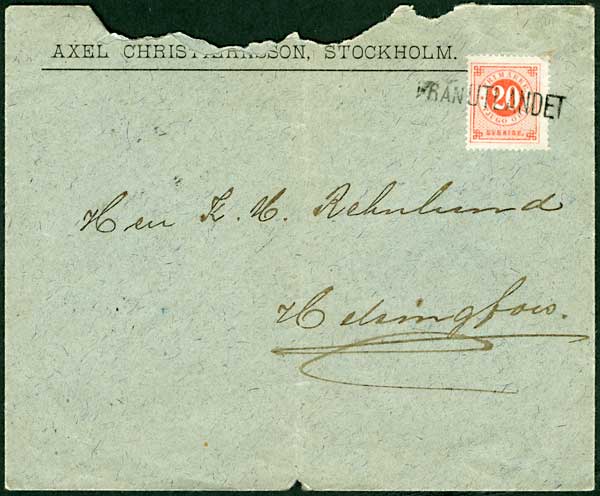 AXEL CHRISTIERNSSON, STOCKHOLM.
FRIMÄRKE
20
TJUGO ÖRE
SVERIGE.
FRÅN UTLANDET
Herr K. H. Rehnlund
Helsingfors.